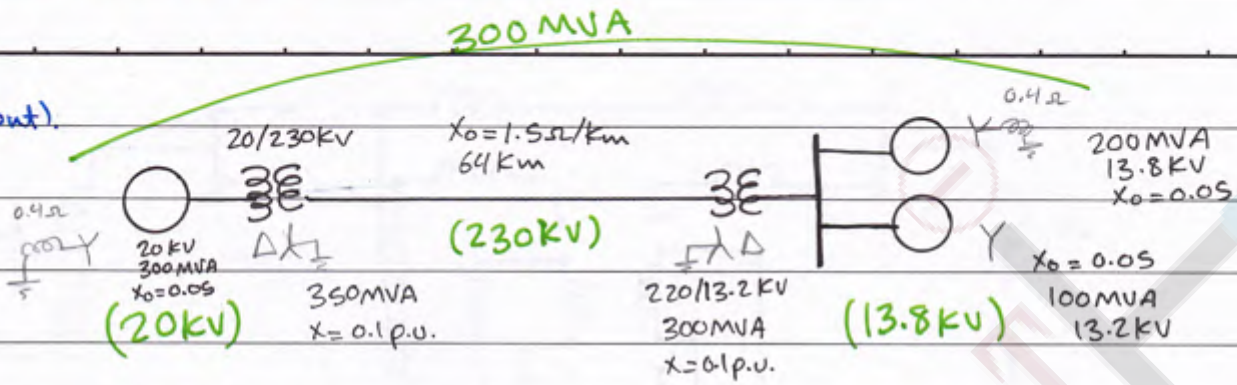 300 MVA
out).
20/230KV
X₀=1.5Ω/Km
64 Km
0.4Ω
Y
200MVA
13.8KV
X₀=0.05
0.4Ω
Y
20KV
300MVA
X₀=0.05
(20KV)
Δ Y
350MVA
X=0.1p.u.
(230KV)
Y Δ
220/13.2KV
300MVA
X=0.1p.u.
(13.8KV)
Y
X₀=0.05
100MVA
13.2KV